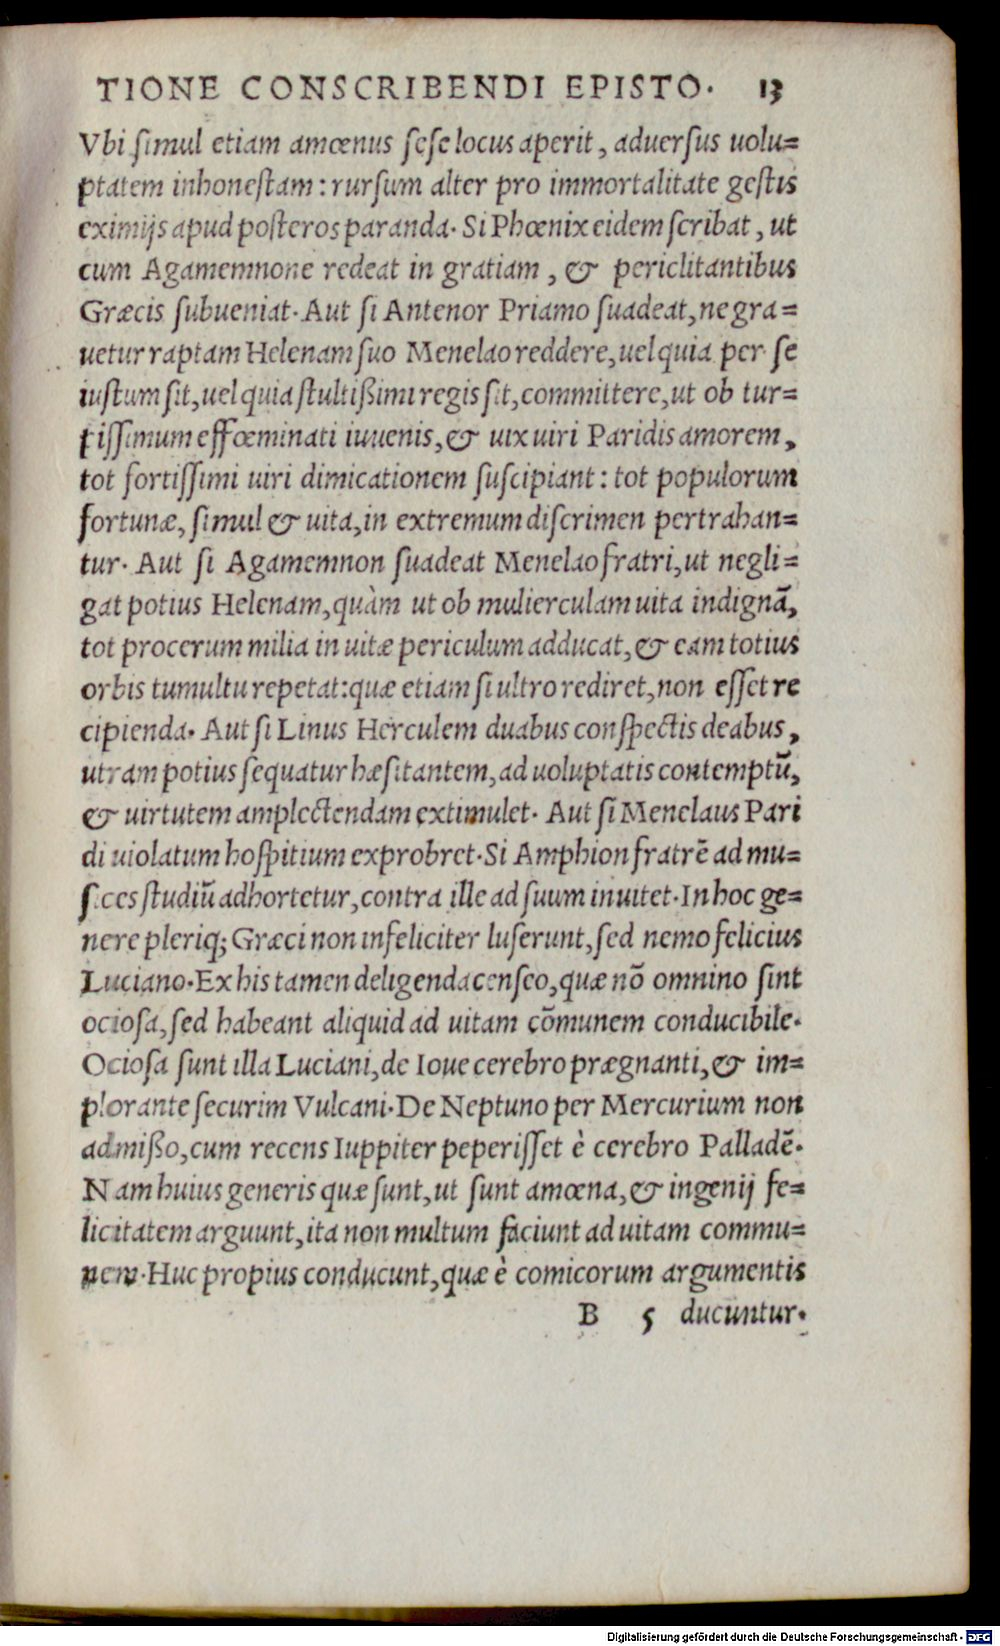 TIONE CONSCRIBENDI EPISTO. 13
Vbi simul etiam amœnus sese locus aperit, aduersus uolu=
ptatem inhonestam: rursum alter pro immortalitate gestis
eximijs apud posteros paranda. Si Phœnix eidem scribat, ut
cum Agamemnone redeat in gratiam, & periclitantibus
Græcis subueniat. Aut si Antenor Priamo suadeat, ne gra=
uetur raptam Helenam suo Menelao reddere, uel quia per se
iustum sit, uel quia stultißimi regis sit, committere, ut ob tur=
pissimum effœminati iuuenis, & uix uiri Paridis amorem,
tot fortissimi uiri dimicationem suscipiant: tot populorum
fortunæ, simul & uita, in extremum discrimen pertrahan=
tur. Aut si Agamemnon suadeat Menelao fratri, ut negli=
gat potius Helenam, quàm ut ob mulierculam uita indignã,
tot procerum milia in uitæ periculum adducat, & eam totius
orbis tumultu repetat: quæ etiam si ultro rediret, non esset re
cipienda. Aut si Linus Herculem duabus conspectis deabus,
utram potius sequatur hæsitantem, ad uoluptatis contemptũ,
& uirtutem amplectendam extimulet. Aut si Menelaus Pari
di uiolatum hospitium exprobret. Si Amphion fratrẽ ad mu=
sices studiũ adhortetur, contra ille ad suum inuitet. In hoc ge=
nere pleriq; Græci non infeliciter luserunt, sed nemo felicius
Luciano. Ex his tamen deligenda censeo, quæ nõ omnino sint
ociosa, sed habeant aliquid ad uitam cõmunem conducibile.
Ociosa sunt illa Luciani, de Ioue cerebro prægnanti, & im=
plorante securim Vulcani. De Neptuno per Mercurium non
admißo, cum recens Iuppiter peperisset è cerebro Palladẽ.
Nam huius generis quæ sunt, ut sunt amœna, & ingenij fe=
licitatem arguunt, ita non multum faciunt ad uitam commu=
nem. Huc propius conducunt, quæ è comicorum argumentis
B 5 ducuntur.
Digitalisierung gefördert durch die Deutsche Forschungsgemeinschaft - DFG